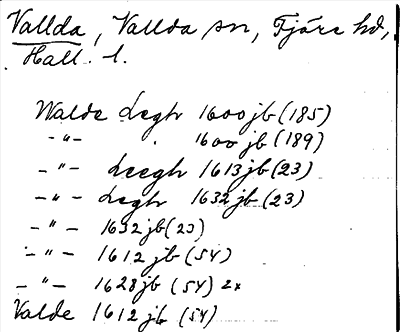 Vallda, Vallda sn, Fjäre hd,
Hall. l.
Walde Legh 1600 jb (185)
-"- . 1600 jb (189)
-"- Leegh 1613 jb (23)
-"- Legh 1632 jb (23)
-"- 1632 jb (23)
-"- 1612 jb (54)
-"- 1628 jb (54) 2x
Valde 1612 jb (54)